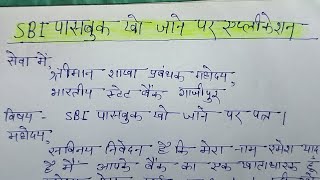 SBI पासबुक खो जाने पर एप्लीकेशन
सेवा में,
श्रीमान शाखा प्रबंधक महोदय,
भारतीय स्टेट बैंक गाजीपुर
विषय - SBI पासबुक खो जाने पर पत्र।
महोदय,
सविनय निवेदन है कि मेरा नाम रमेश याद
है मैं आपके बैंक का एक खाताधारक